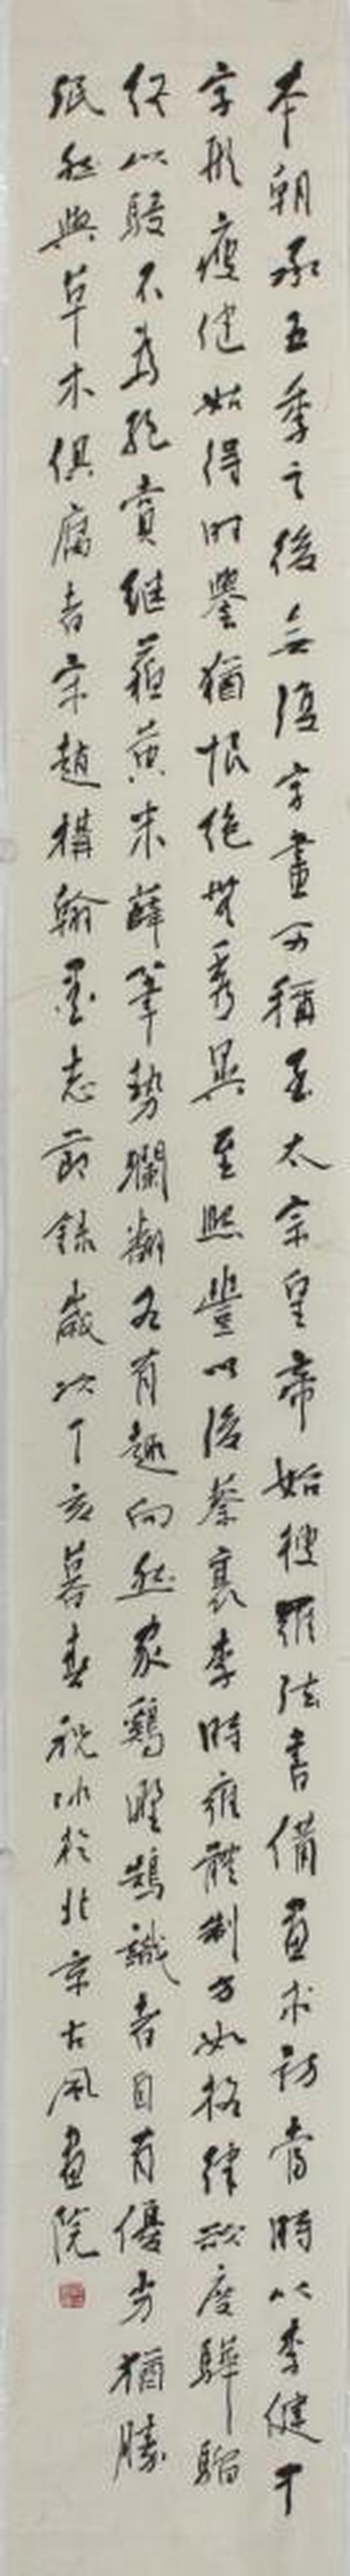 本朝承五季之後無復字畫可稱至太宗皇帝始搜羅法書備盡求訪當時以李健中
字形瘦健始得時譽猶恨絕無秀異至熙豐以後蔡襄李時雍體制方如格律欲度驊騮
終以駸不為絕賞繼蘇黃米薛筆勢瀾翻各有趣向然家鷄野鵠識者自有優劣猶勝
紙然與草木俱腐者宋趙構翰墨志節錄歲次丁亥暮春祝冰於北京古風畫院